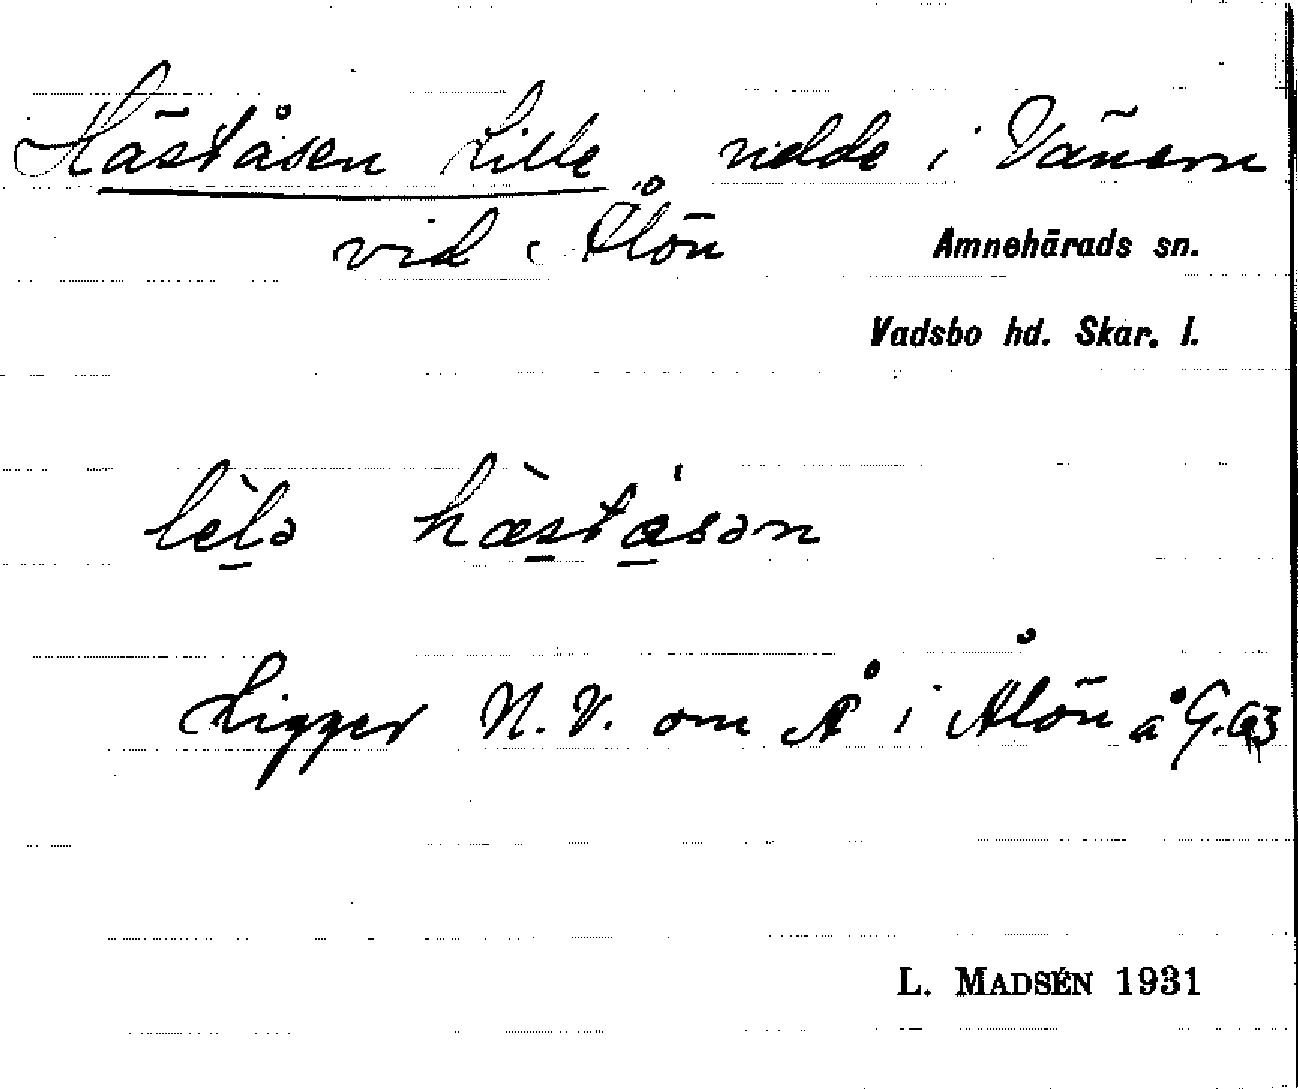 Häståsen Lille, udde i Vänern
vid Ålön
Amnehärads sn.
Vadsbo hd. Skar. l.
lèlə hæ̀ståsən
Ligger N.V. om Å i Ålön å G.
L. MADSÉN 1931